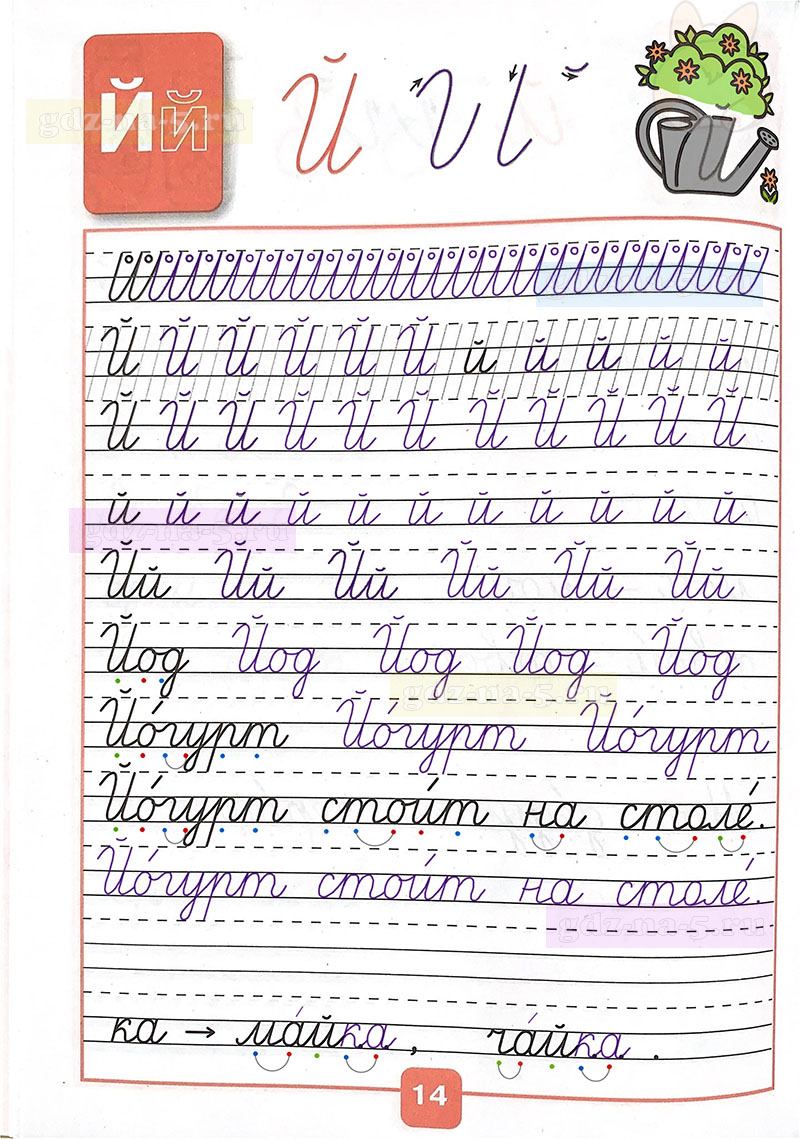 Йй Й
gdz-na-5.ru
Й Й Й Й Й Й й й й й й
Й Й Й Й Й Й Й Й Й Й Й
й й й й й й й й й й й
gdz-na-5.ru
Йй Йй Йй Йй Йй Йй
Йод Йод Йод Йод Йод
gdz-na-5.ru
Йо́гурт Йо́гурт Йо́гурт
Йо́гурт стои́т на столе́.
Йо́гурт стои́т на столе́.
gdz-na-5.ru
ка → ма́йка, ча́йка.
14